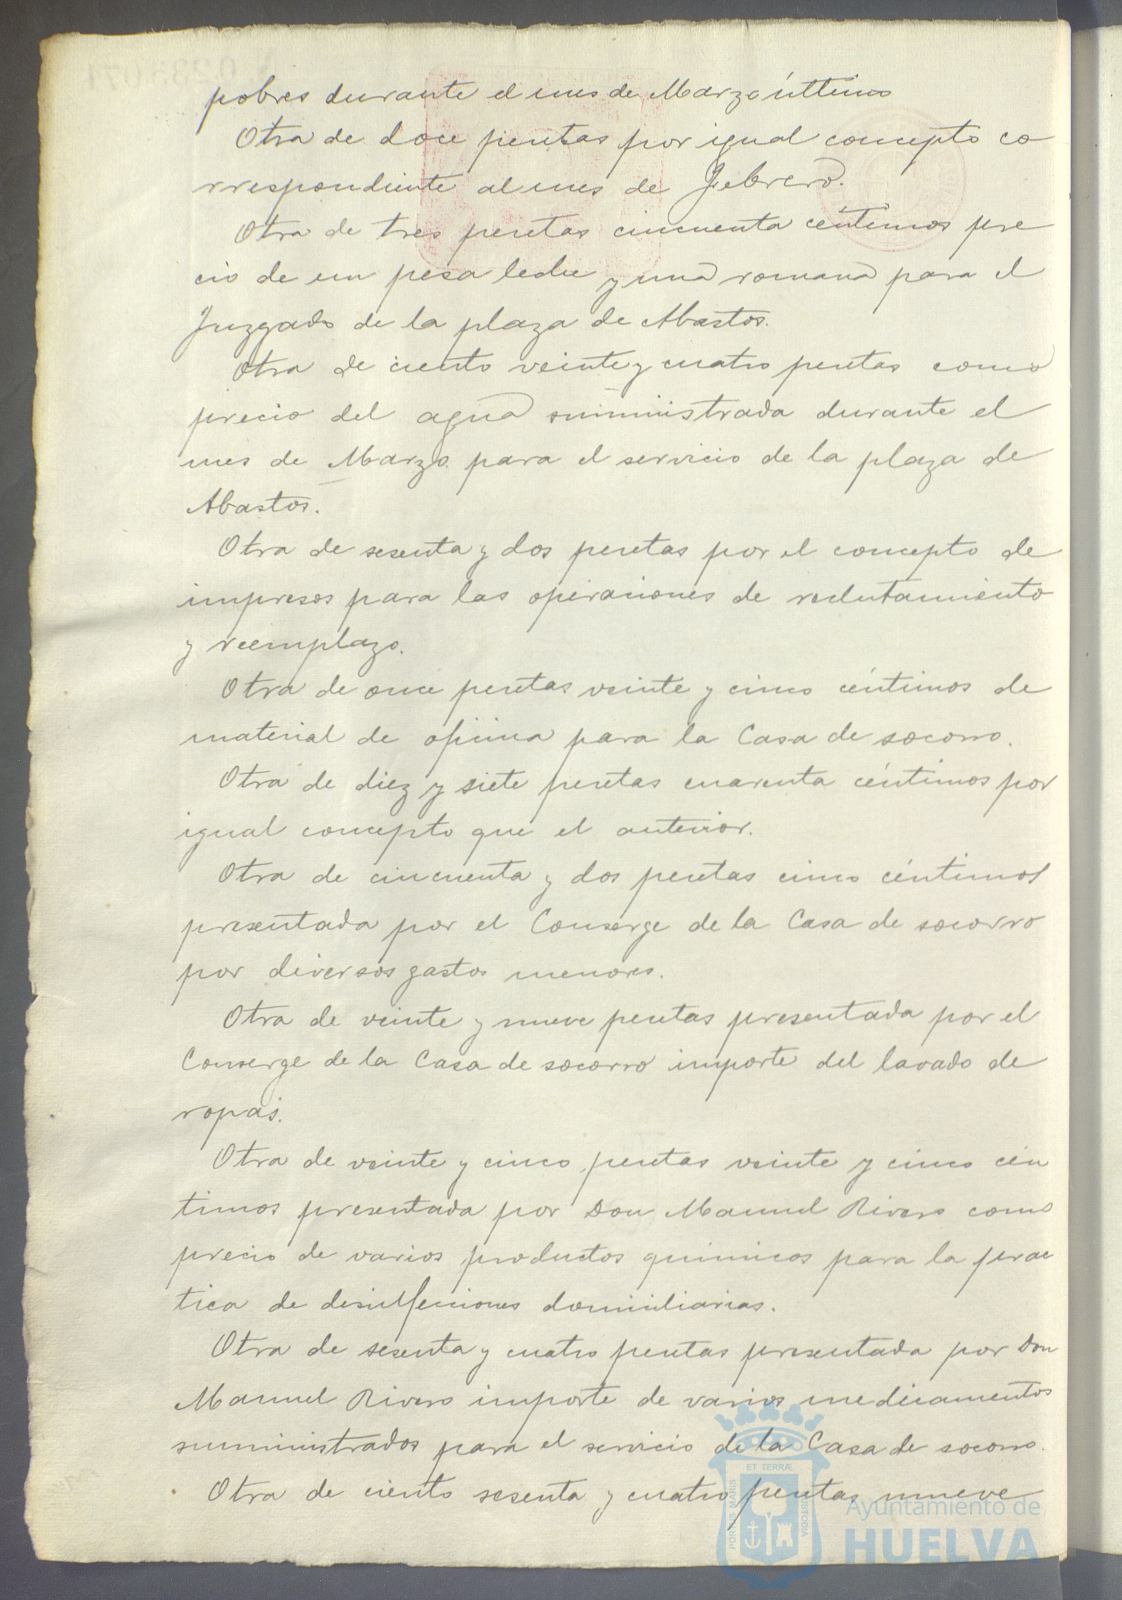 pobres durante el mes de Marzo último
Otra de doce pesetas por igual concepto co
rrespondiente al mes de Febrero.
Otra de tres pesetas cincuenta céntimos pre
cio de un pesa leche y una romana para el
Juzgado de la plaza de Abastos.
Otra de ciento veinte y cuatro pesetas como
precio del agua suministrada durante el
mes de Marzo para el servicio de la plaza de
Abastos.
Otra de sesenta y dos pesetas por el concepto de
impresos para las operaciones de reclutamiento
y reemplazo.
Otra de once pesetas veinte y cinco céntimos de
material de oficina para la Casa de socorro.
Otra de diez y siete pesetas cuarenta céntimos por
igual concepto que el anterior.
Otra de cincuenta y dos pesetas cinco céntimos
presentada por el Conserge de la Casa de socorro
por diversos gastos menores.
Otra de veinte y nueve pesetas presentada por el
Conserge de la Casa de socorro importe del lavado de
ropas.
Otra de veinte y cinco pesetas veinte y cinco cén
timos presentada por Don Manuel Rivero como
precio de varios productos quimicos para la prac
tica de desinfecciones domiciliarias.
Otra de sesenta y cuatro pesetas presentada por Don
Manuel Rivero importe de varios medicamentos
suministrados para el servicio de la Casa de socorro.
Otra de ciento sesenta y cuatro pesetas nueve
PORTUS MARIS ET TERRÆ CUSTODIA
Ayuntamiento de
HUELVA